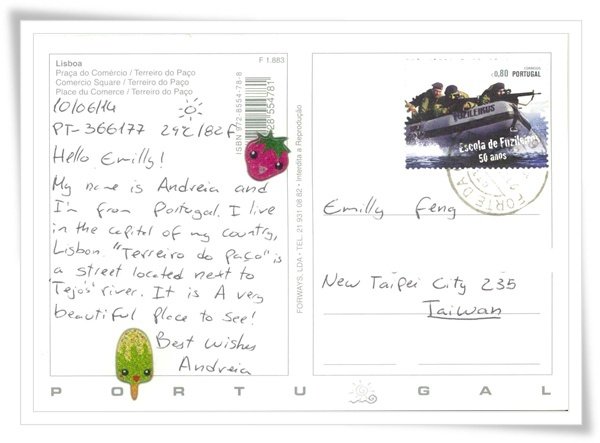 Lisboa
Praça do Comércio / Terreiro do Paço
Comercio Square / Terreiro do Paço
Place du Comerce / Terreiro do Paço
F 1.883
10/06/14
PT-366177 29ºc/82F
Hello Emilly!
My name is Andreia and
I'm from Portugal. I live
in the capitol of my country,
Lisbon. "Terreiro do paço" is
a street located next to
'Tejo's' river. It is A very
beautiful place to see!
Best wishes
Andreia
ISBN 972-8554-78-8
FORWAYS, LDA • TEL. 21 931 08 82 • Interdita a Reprodução
€0,80 PORTUGAL
FUZILEIROS
Escola de Fuzileiros
50 anos
FORTE DA
Emilly Feng
New Taipei City 235
Taiwan
PORTUGAL